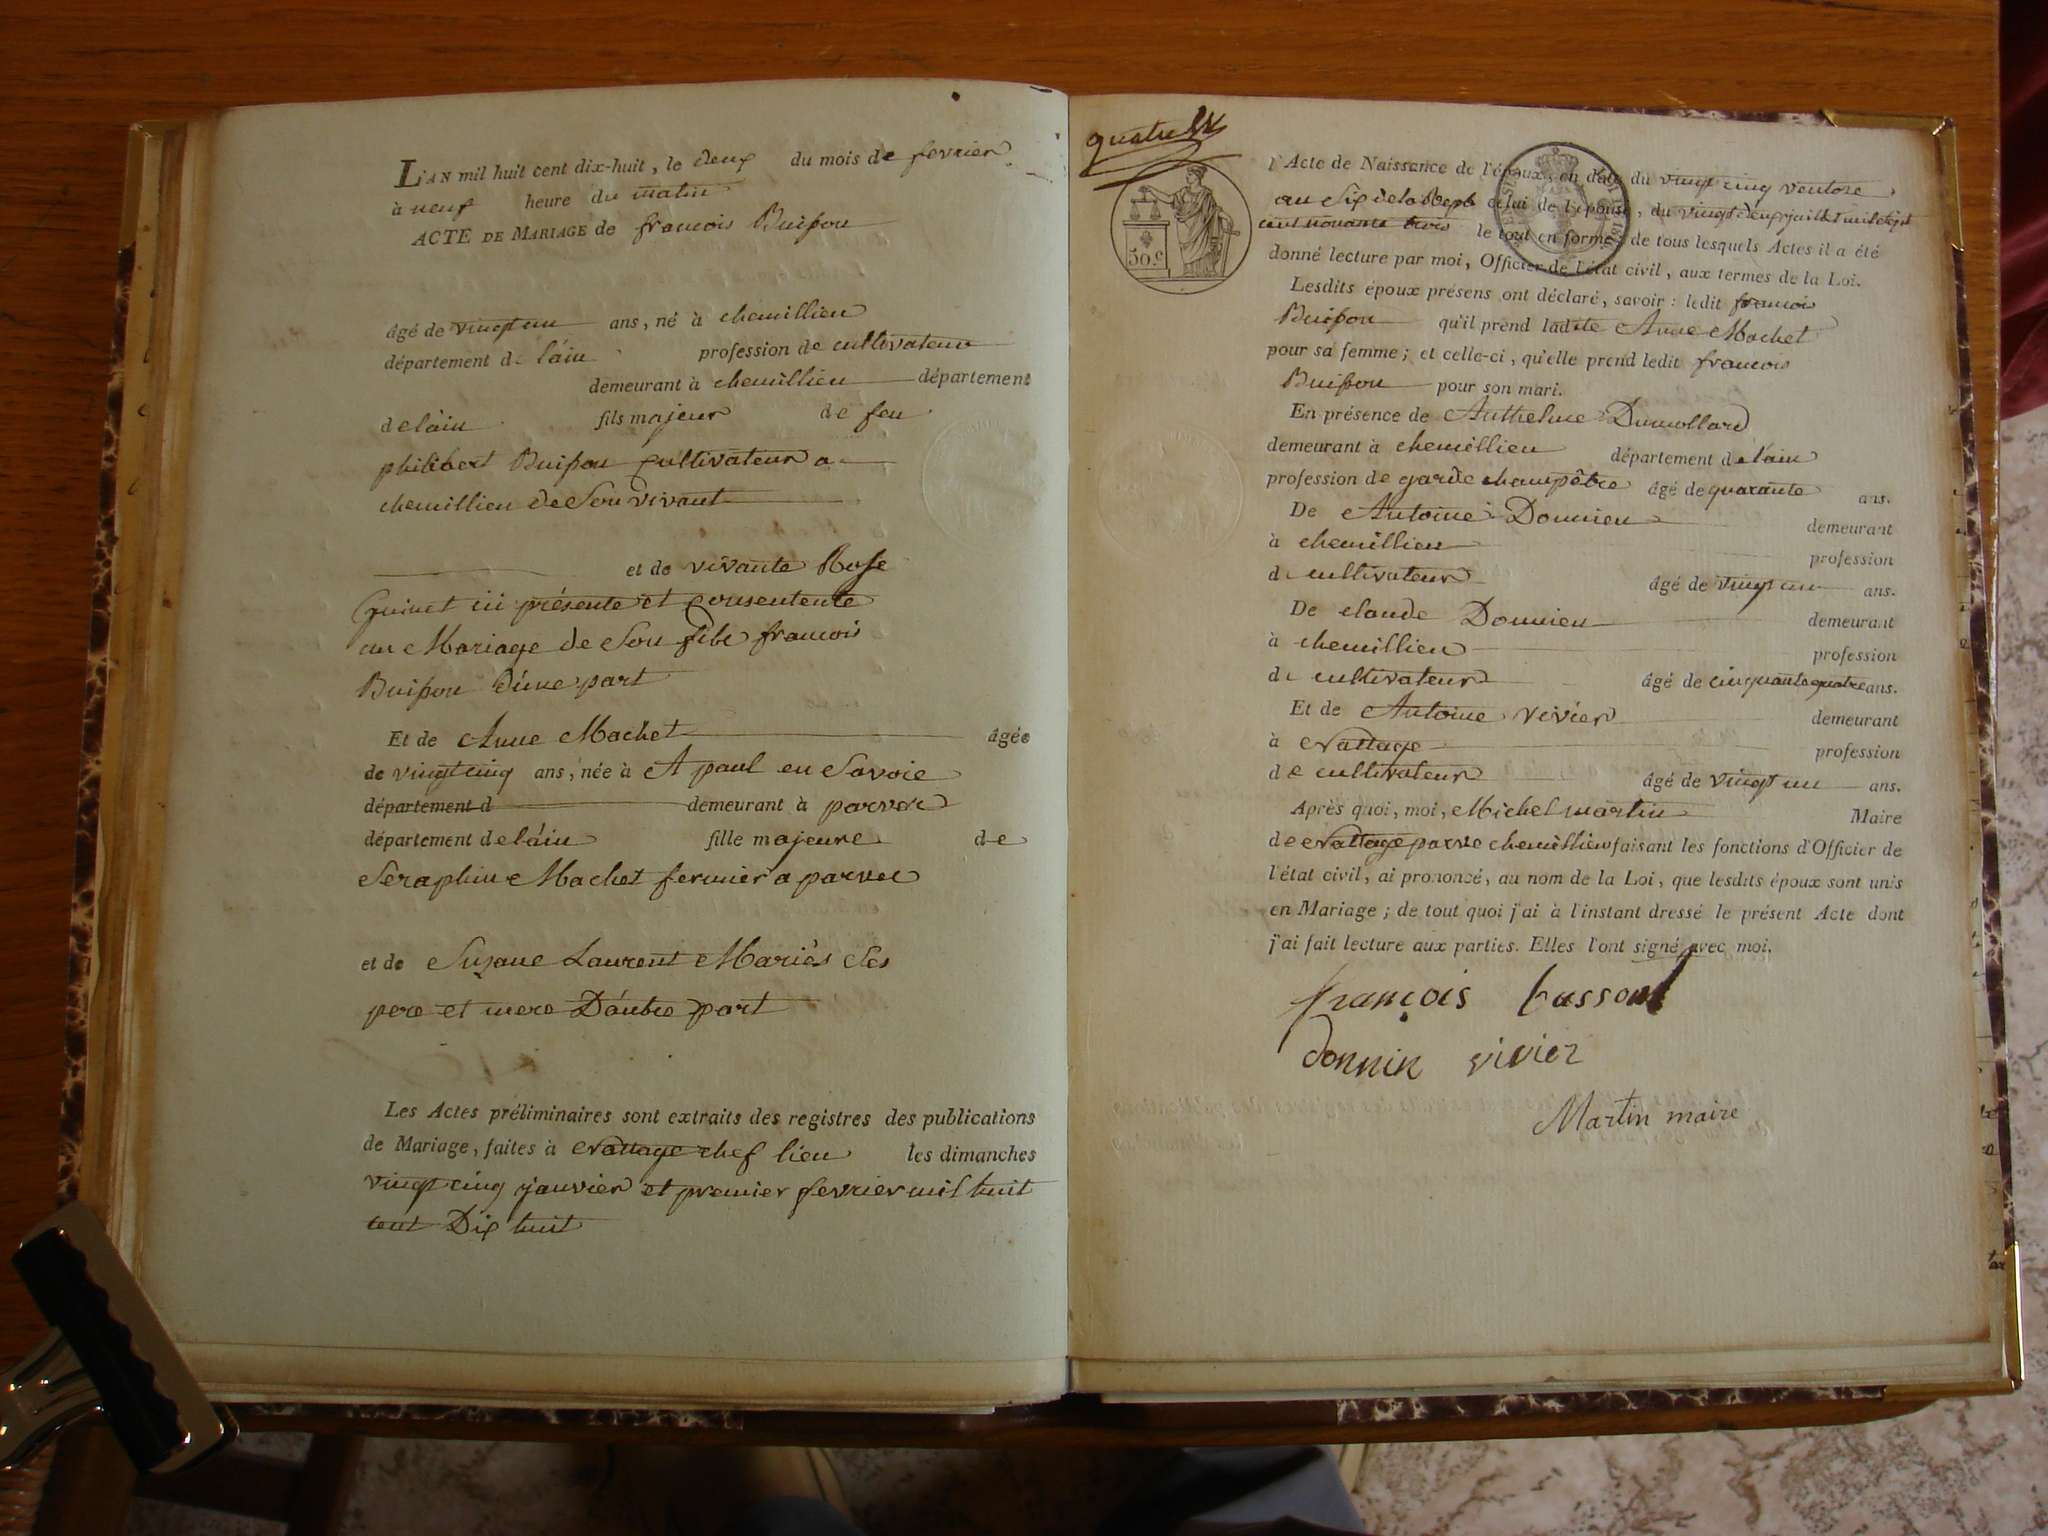 L'AN mil huit cent dix-huit, le deux du mois de fevrier
à neuf heure du matin
ACTE DE MARIAGE de francois Buisson
âgé de vingt un ans, né à chemillieu
département de l'ain profession de cultivateur
demeurant à chemillieu département
de l'ain fils majeur de feu
philibert Buisson cultivateur a
chemillieu de Son vivant
et de vivante Rose
Guinet ici présente et consentente
au Mariage de Son fils francois
Buisson d'une part
Et de Anne Machet âgée
de vingt cinq ans, née à St paul en Savoie
département d demeurant à parves
département de l'ain fille majeure de
Seraphin Machet fermier a parves
et de Suzane Laurent Mariés Ses
pere et mere D'autre part
Les Actes préliminaires sont extraits des registres des publications
de Mariage, faites à chef lieu les dimanches
vingt cinq janvier et premier fevrier mil huit
cent Dix huit
quatre
50 c
l'Acte de Naissance de l'époux, en date du vingt cinq ventose
an Six de la Repb celui de l'épouse, du vingt deux juillet mil sept
cent nonante trois le tout en forme; de tous lesquels Actes il a été
donné lecture par moi, Officier de l'état civil, aux termes de la Loi.
Lesdits époux présens ont déclaré, savoir: ledit francois
Buisson qu'il prend ladite Anne Machet
pour sa femme; et celle-ci, qu'elle prend ledit francois
Buisson pour son mari.
En présence de Anthelme Dumollard
demeurant à chemillieu département de l'ain
profession de garde champêtre âgé de quarante ans.
De Antoine Donnien demeurant
à chemillieu profession
de cultivateur âgé de vingt un ans.
De claude Donnien demeurant
à chemillieu profession
de cultivateur âgé de cinquante quatre ans.
Et de Antoine vivier demeurant
à profession
de cultivateur âgé de vingt un ans.
Après quoi, moi, Michel martin Maire
de parve chemillieu faisant les fonctions d'Officier de
l'état civil, ai prononcé, au nom de la Loi, que lesdits époux sont unis
en Mariage; de tout quoi j'ai à l'instant dressé le présent Acte dont
j'ai fait lecture aux parties. Elles l'ont signé avec moi.
françois bussont
donnin vivier
Martin maire